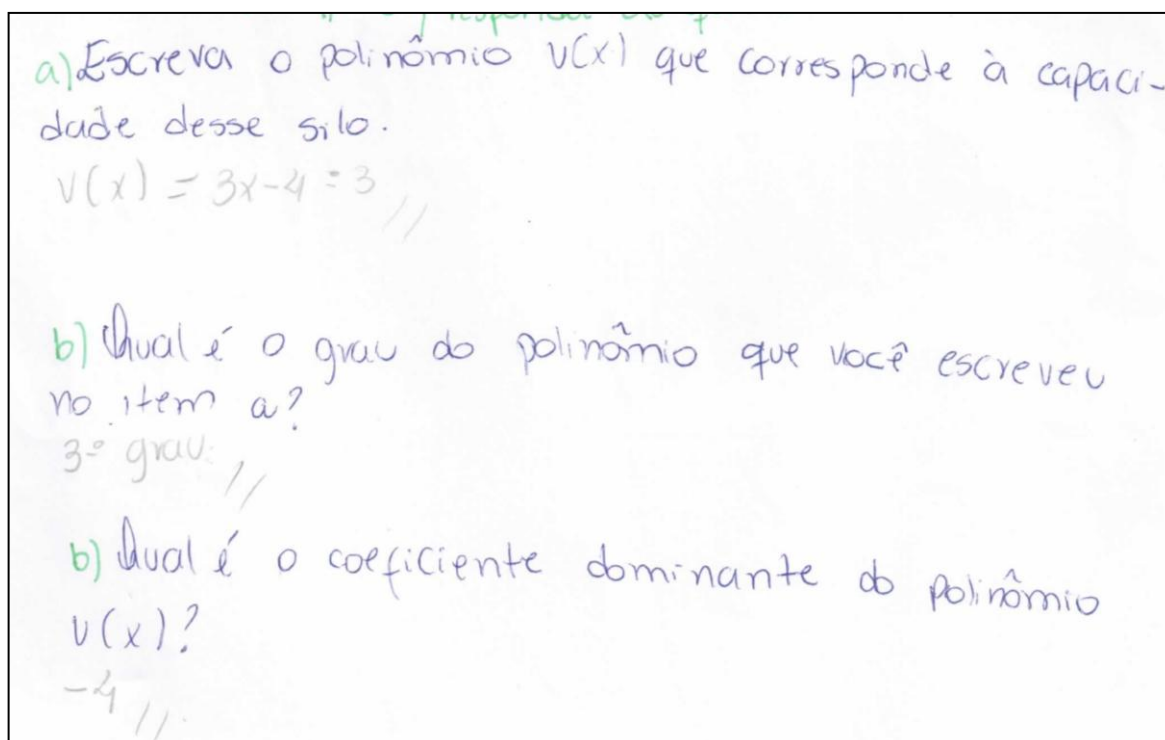 a) Escreva o polinômio V(x) que corresponde à capaci-
dade desse silo.
V(x) = 3x-4 = 3 //
b) Qual é o grau do polinômio que você escreveu
no item a?
3º grau. //
b) Qual é o coeficiente dominante do polinômio
V(x)?
-4 //.